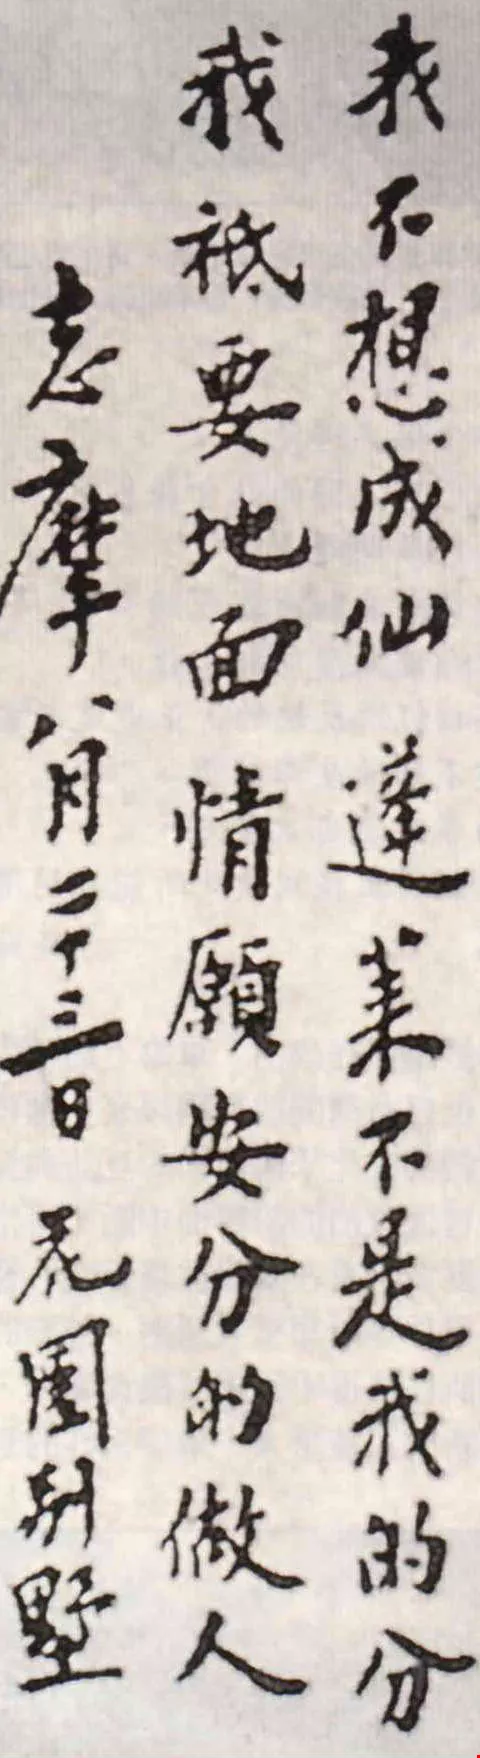 我不想成仙 蓬萊不是我的分
我祗要地面 情願安分的做人
志摩 八月二十三日 花園別墅